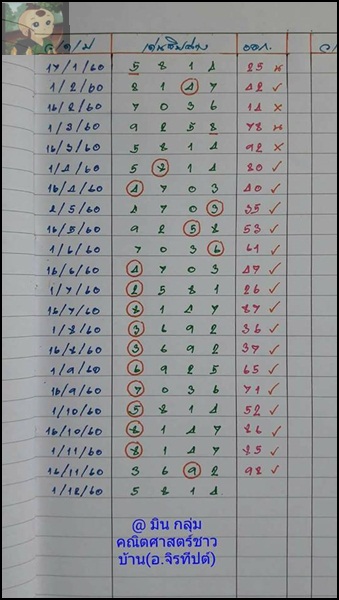 ว/ด/ป เด่นสิบล่าง ออก. ว/
17/1/60 5 8 1 4 25 ×
1/2/60 8 1 4 7 42 ✓
16/2/60 7 0 3 6 14 ×
1/3/60 9 2 5 8 78 ×
16/3/60 5 8 1 4 92 ×
1/4/60 5 8 1 4 80 ✓
16/4/60 4 7 0 3 40 ✓
2/5/60 4 7 0 3 35 ✓
16/5/60 9 2 5 8 53 ✓
1/6/60 7 0 3 6 61 ✓
16/6/60 4 7 0 3 47 ✓
1/7/60 2 5 8 1 26 ✓
16/7/60 8 1 4 7 87 ✓
1/8/60 3 6 9 2 36 ✓
16/8/60 3 6 9 2 37 ✓
1/9/60 6 9 2 5 65 ✓
16/9/60 7 0 3 6 71 ✓
1/10/60 5 8 1 4 52 ✓
16/10/60 8 1 4 7 86 ✓
1/11/60 8 1 4 7 85 ✓
16/11/60 3 6 9 2 98 ✓
1/12/60 5 8 1 4
@ มิน กลุ่ม
คณิตศาสตร์ชาว
บ้าน(อ.จิรทีปต์)